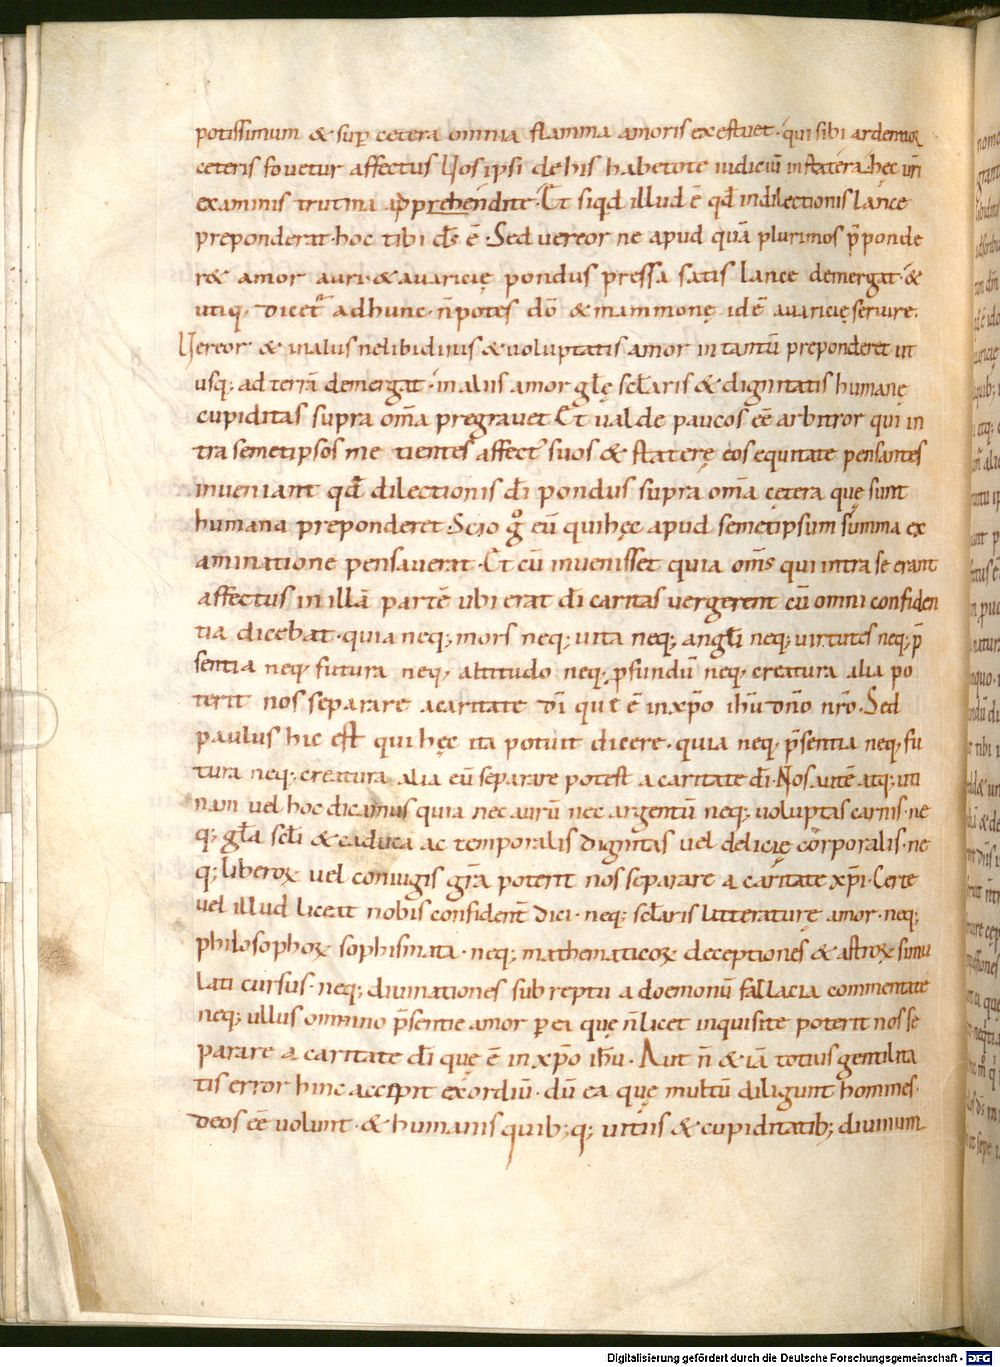 potissimum & sup̱ cetera omnia flamma amoris exestuet · qui sibi ardentioꝝ
ceteris fovetur affectus Uos ipsi de his habetote iudiciū in statera hęc ur̄i
examinis trutina apprehendite · Et siqd illud ē qd̄ in dilectionis lance
preponderat · hoc tibi ds̄ ē · Sed vereor ne apud quā plurimos p̄ponde
r& amor auri · & avaricię pondus pressa satis lance demergat · &
utiq, dicet᷑ ad hunc · n̄ potes dō & mammonę idē avaricię servire.
Uereor & in alus ne libidinis & voluptatis amor in tantū preponderet ut
usq; ad terrā demergat · in alus amor glę scl̄aris & dignitatis humanę
cupiditas supra om̄a pregravet Et valde paucos eē arbitror qui in
tra semetipsos me tientes affect᷒ suos & staterę eos equitate pensantes
inveniant qd̄ dilectionis dī pondus supra om̄a cętera quę sunt
humana preponderet · Scio gͦ eū qui hęc apud semetipsum summa ex
aminatione pensaverat · Et cū invenisset quia om̄s qui intra se erant
affectus in illā partē ubi erat dī caritas vergerent cū omni confiden
tia dicebat · quia neq; mors neq; vita neq; angl̄i neq; virtutes neq; p̄
sentia neq, futura neq, altitudo neq, ꝓfundū neq, creatura alia po
terit nos separare a caritate dī quę ē in xp̄o ihū dn̄o nr̄o · Sed
paulus hic est qui hęc ita potuit dicere · quia neq, p̄sentia neq, fu
tura neq; creatura alia eū separare potest a caritate dī · Nos autē atq; uti
nam vel hoc dicamus quia nec aurū nec argentū neq; voluptas carnis · ne
q; gl̄a scl̄i & caduca ac temporalis dignitas vel delicię corporalis · ne
q; liberoꝝ vel coniugis gr̄a poterit nos separare a caritate xp̄i · Certe
vel illud liceat nobis confident̄ dici · neq; scl̄aris litteraturę amor · neq;
philosophoꝝ sophismata · neq; mathematicoꝝ deceptiones & astroꝝ simu
lati cursus · neq; divinationes subreptu a doemonū fallacia commentate
neq; ullus omnino p̄sentie amor p̱ ea quę n̄ licet inquisite poterit nos se
parare a caritate dī quę ē in xp̄o ihū · Aut n̄ & iā totius gentilita
tis error hinc accipit exordiū · dū ea quę multū diligunt homines ·
deos eē volunt · & humanis quib; q; vitiis & cupiditatib; divinum
Digitalisierung gefördert durch die Deutsche Forschungsgemeinschaft - DFG